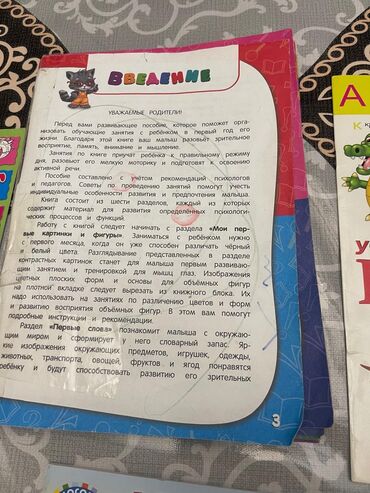 ВВЕДЕНИЕ
УВАЖАЕМЫЕ РОДИТЕЛИ!
Перед вами развивающее пособие, которое поможет орга-
низовать обучающие занятия с ребёнком в первый год его
жизни. Благодаря этой книге ваш малыш разовьёт зрительное
восприятие, память, внимание и мышление.
Занятия по книге приучат ребёнка к правильному режиму
дня, разовьют его мелкую моторику и подготовят к освоению
активной речи.
Пособие составлено с учётом рекомендаций психологов
и педагогов. Советы по проведению занятий помогут учесть
индивидуальные особенности развития и предпочтения малыша.
Книга состоит из шести разделов, каждый из которых
содержит материал для развития определённых психологи-
ческих процессов и функций.
Работу с книгой следует начинать с раздела «Мои пер-
вые картинки и фигуры». Заниматься с ребёнком нужно
с первого месяца, когда он уже способен различать чёрный
и белый цвета. Разглядывание представленных в разделе
контрастных картинок станет для малыша первым развиваю-
щим занятием и тренировкой для мышц глаз. Изображения
цветных плоских форм и основы для объёмных фигур
на плотной вкладке следует вырезать из книжного блока. Их
надо использовать на занятиях по различению цветов и форм
и развитию восприятия объёмных фигур. В этом вам помогут
подробные инструкции и рекомендации.
Раздел «Первые слова» познакомит малыша с окружаю-
щим миром и сформирует у него словарный запас. Яр-
кие изображения окружающих предметов, игрушек, одежды,
животных, транспорта, овощей, фруктов и ягод понравятся
ребёнку и будут способствовать развитию его зрительных
3
А
К
У